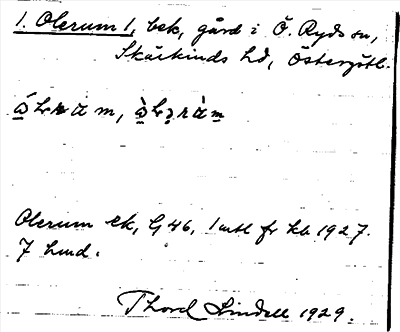 1. Olerum 1, bek, gård i Ö. Ryds sn,
Skärkinds hd, Östergötl.
Olerum ek, G 46, 1 mtl fr kb 1927.
7 hmd.
Thord Lindell 1929.